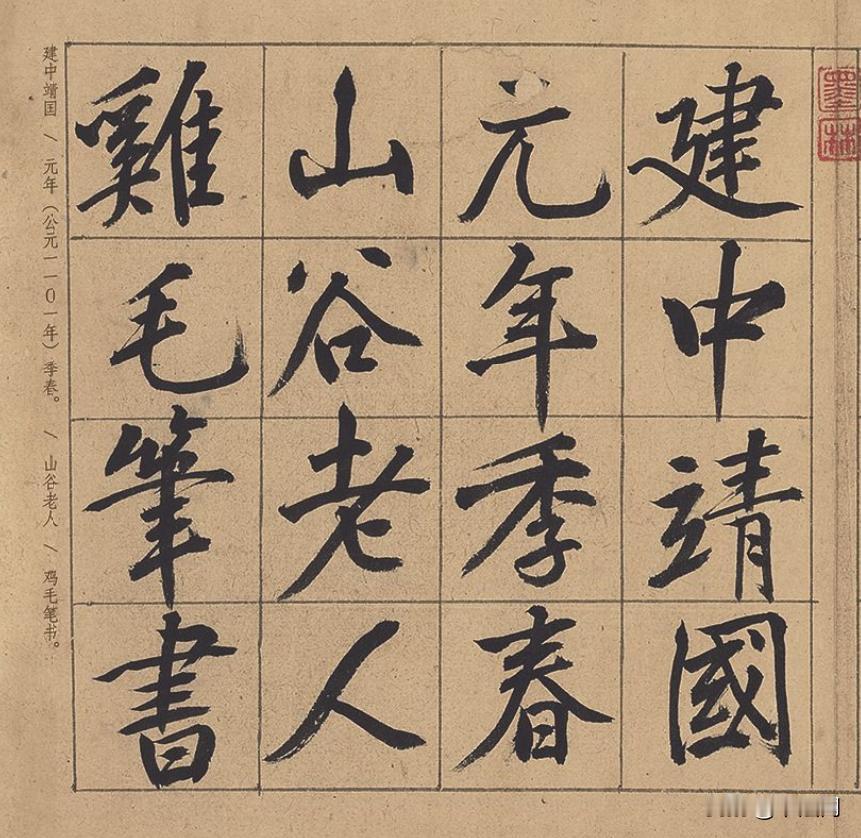 墨林
建中靖國
元年季春
山谷老人
雞毛筆書
建中靖国 / 元年（公元一一０一年）季春。 / 山谷老人 / 鸡毛笔书。